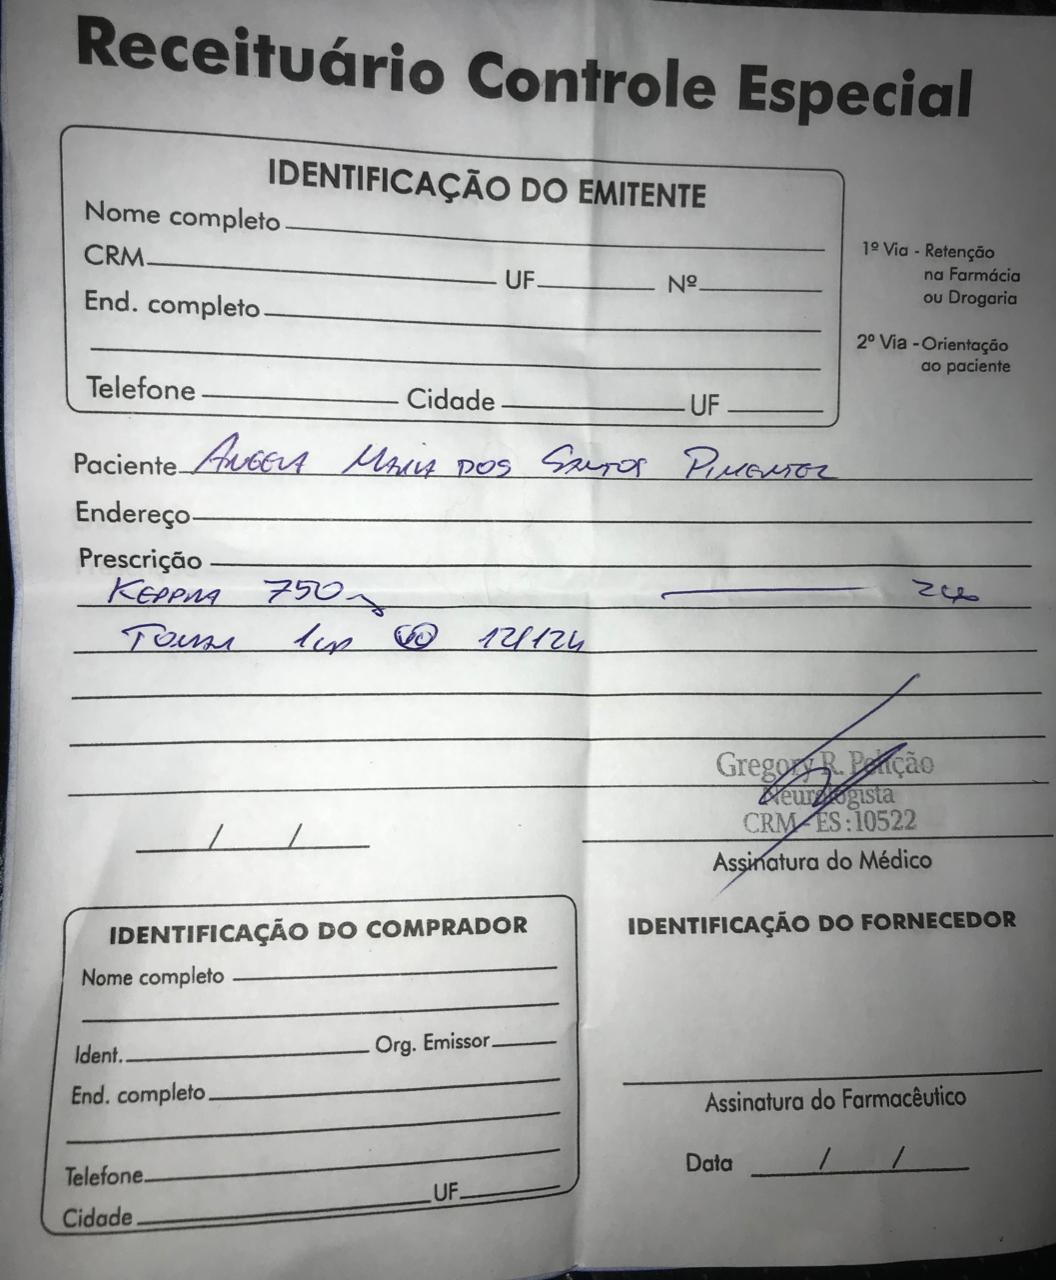 Receituário Controle Especial
IDENTIFICAÇÃO DO EMITENTE
Nome completo
CRM UF Nº
End. completo
Telefone Cidade UF
1º Via - Retenção
na Farmácia
ou Drogaria
2º Via - Orientação
ao paciente
Paciente Angela Maria dos Santos Pimentel
Endereço
Prescrição
Keppra 750mg
Tomar 1cp VO 12/12h
Gregory R. Polição
Neurologista
CRM-ES:10522
/ /
Assinatura do Médico
IDENTIFICAÇÃO DO COMPRADOR
Nome completo
Ident. Org. Emissor
End. completo
Telefone
Cidade UF
IDENTIFICAÇÃO DO FORNECEDOR
Assinatura do Farmacêutico
Data / /